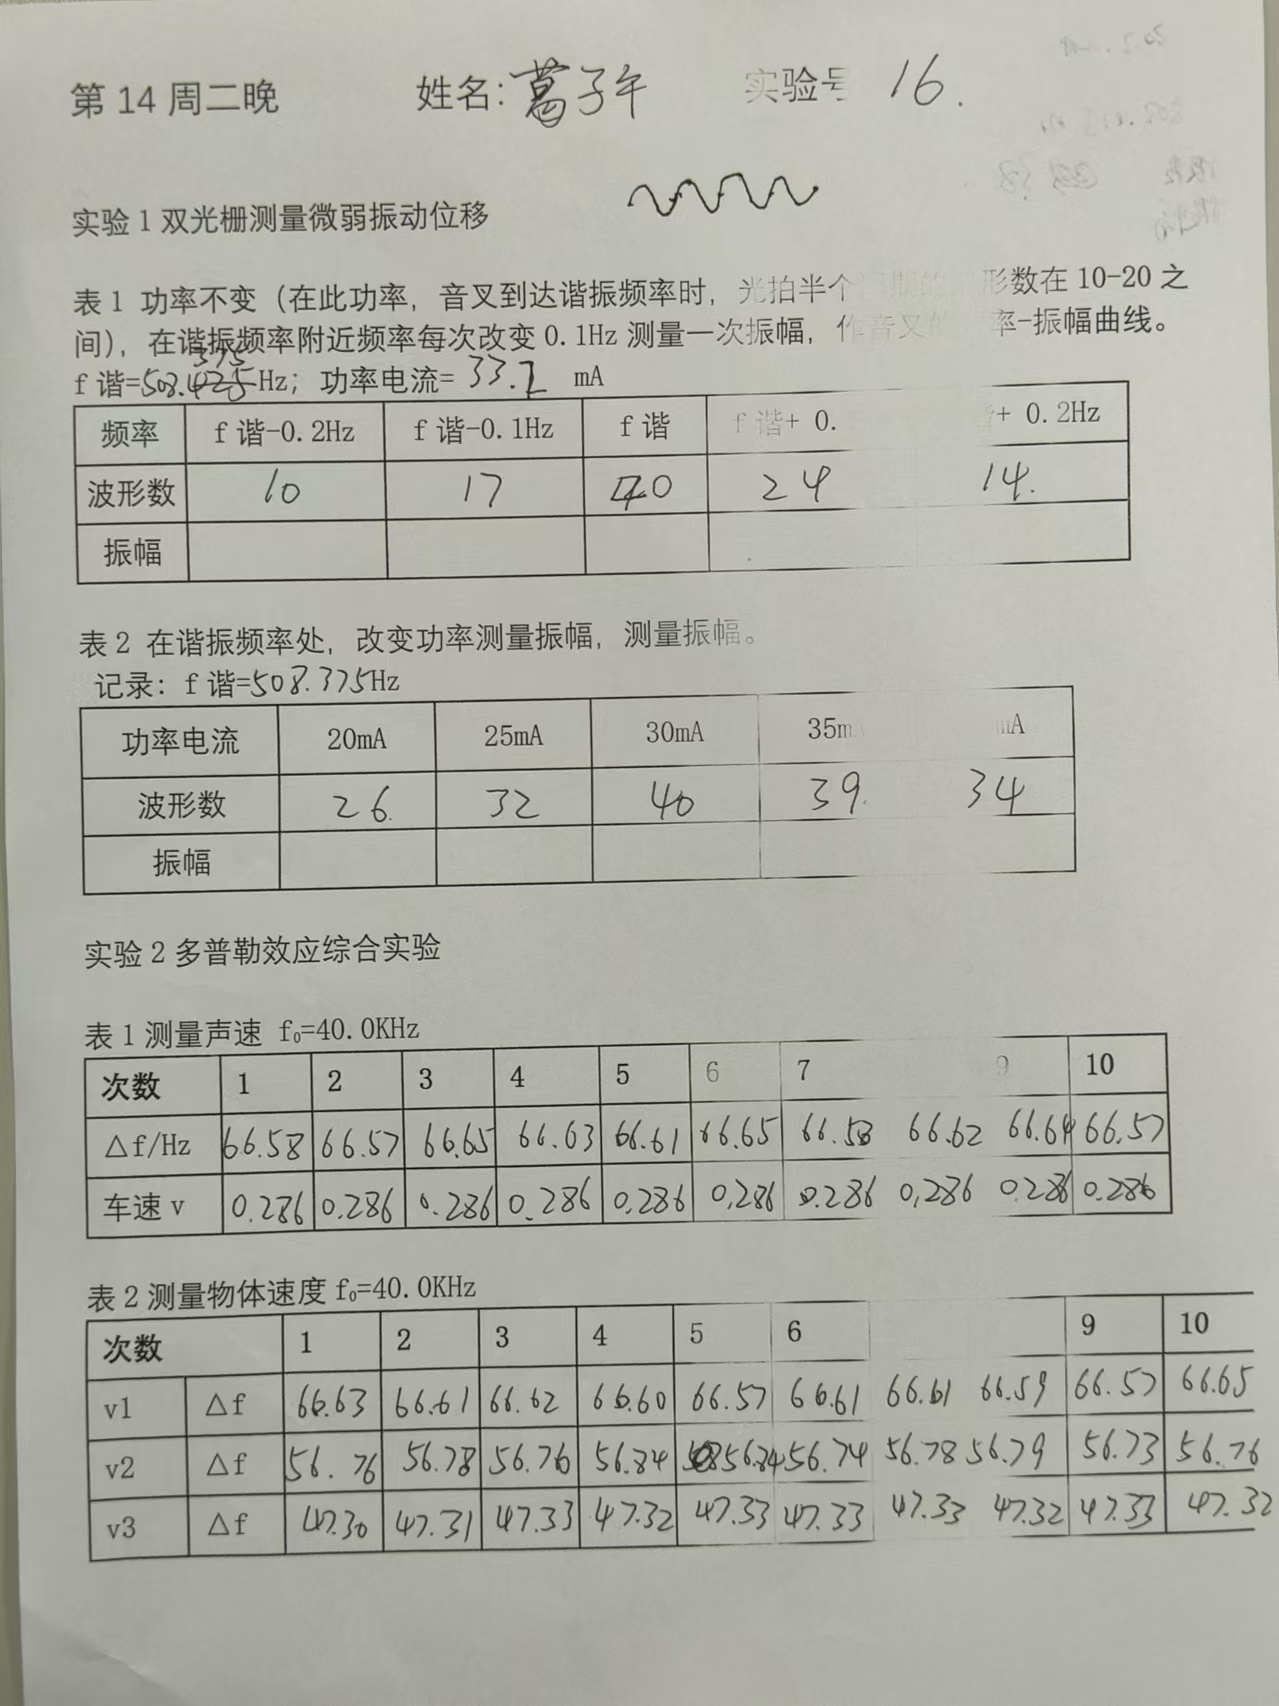 第 14 周二晚 姓名: 葛子午 实验号 16.
实验 1 双光栅测量微弱振动位移
表 1 功率不变（在此功率，音叉到达谐振频率时，光拍半个周期的 形数在 10-20 之
间），在谐振频率附近频率每次改变 0.1Hz 测量一次振幅，作音叉的 率-振幅曲线。
375
f 谐=508.425Hz; 功率电流= 33.2 mA
频率 f 谐-0.2Hz f 谐-0.1Hz f 谐 f 谐+ 0. + 0.2Hz
波形数 10 17 40 24 14.
振幅
表 2 在谐振频率处，改变功率测量振幅，测量振幅。
记录: f 谐=508.375Hz
功率电流 20mA 25mA 30mA 35m mA
波形数 26. 32 40 39. 34
振幅
实验 2 多普勒效应综合实验
表 1 测量声速 f₀=40.0KHz
次数 1 2 3 4 5 6 7 9 10
△f/Hz 66.58 66.57 66.65 66.63 66.61 66.65 66.58 66.62 66.64 66.57
车速 v 0.286 0.286 0.286 0.286 0.286 0.286 0.286 0.286 0.286 0.286
表 2 测量物体速度 f₀=40.0KHz
次数 1 2 3 4 5 6 9 10
v1 △f 66.63 66.61 66.62 66.60 66.57 66.61 66.61 66.59 66.57 66.65
v2 △f 56.76 56.78 56.76 56.84 56.84 56.74 56.78 56.79 56.73 56.76
v3 △f 47.30 47.31 47.33 47.32 47.33 47.33 47.33 47.32 47.33 47.32